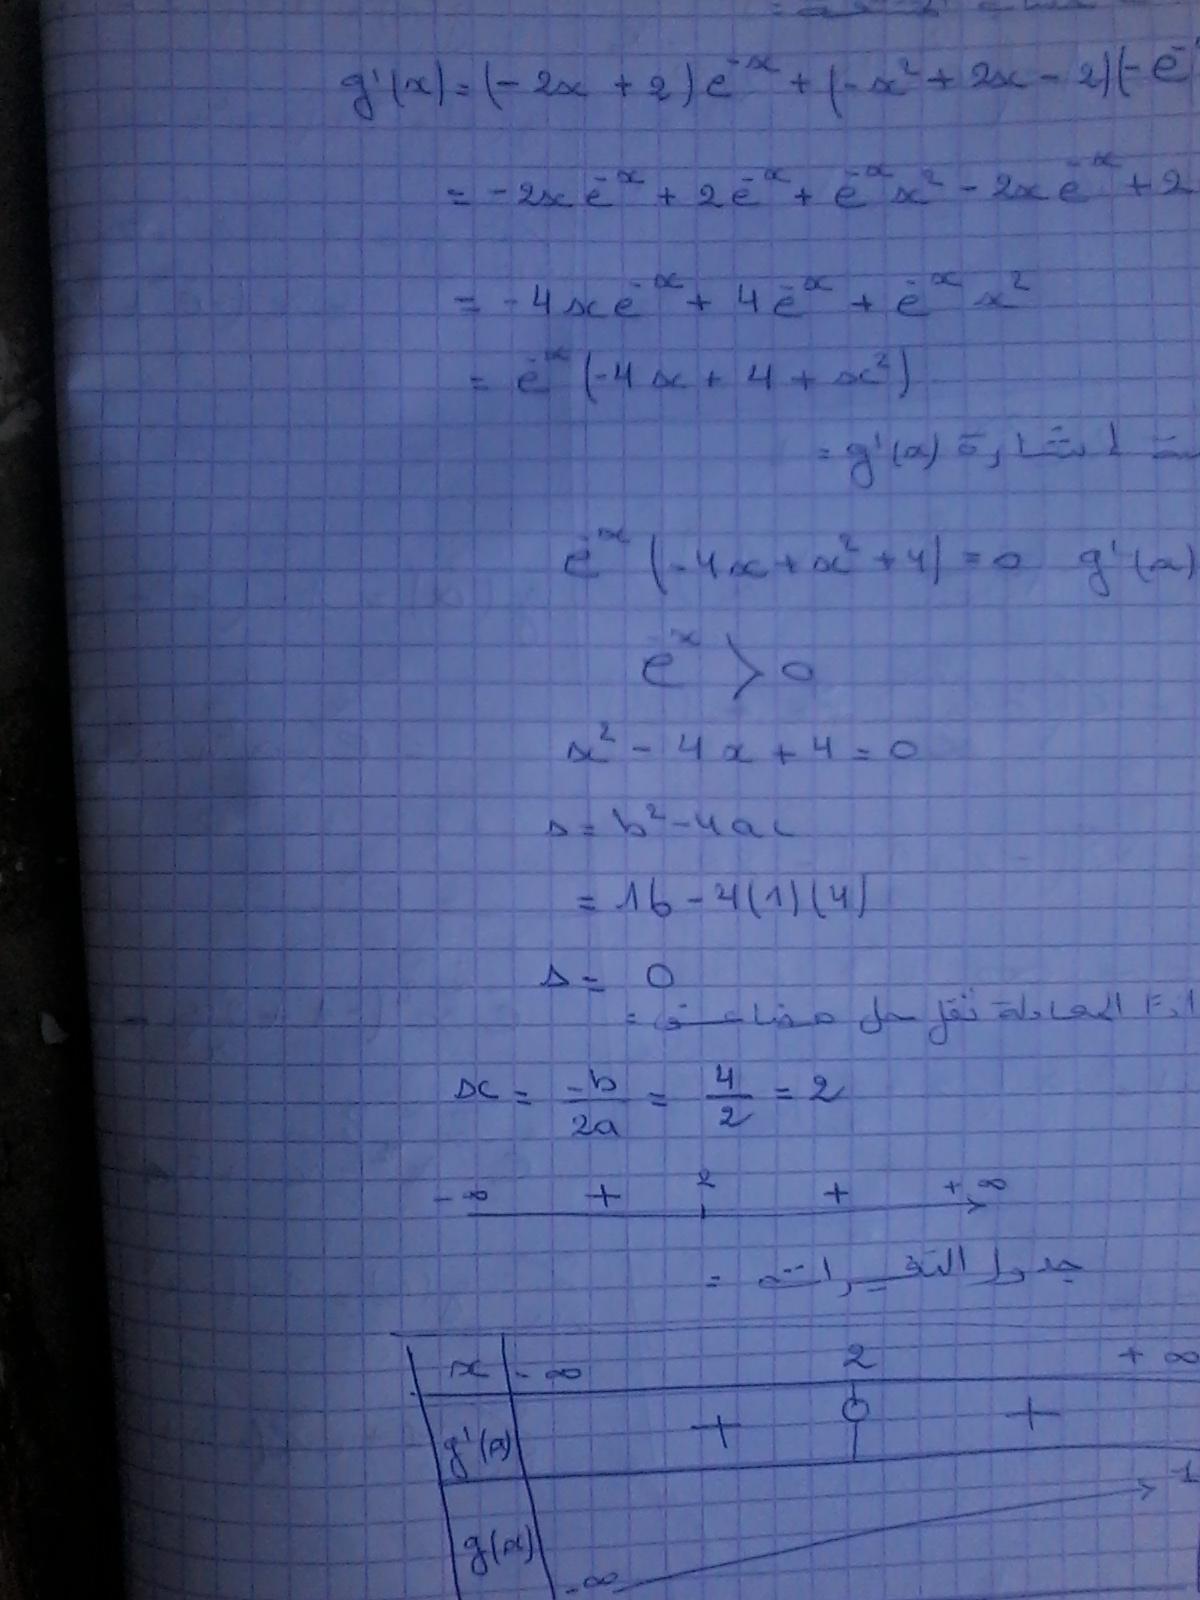 g'(x) = (-2x + 2) e^-x + (-x² + 2x - 2)(-e^-
= -2x e^-x + 2 e^-x + e^-x x² - 2x e^-x + 2
= -4x e^-x + 4 e^-x + e^-x x²
= e^-x (-4x + 4 + x²)
= g'(x) إشارة
e^-x (-4x + x² + 4) = 0 g'(x)
e^-x > 0
x² - 4x + 4 = 0
Δ = b² - 4ac
= 16 - 4(1)(4)
Δ = 0
المعادلة تقبل حل مضاعف =
x = -b/2a = 4/2 = 2
-∞ + 2 + +∞
جدول التغيرات =
x -∞ 2 +∞
g'(x) + 0 +
g(x) -∞ 1